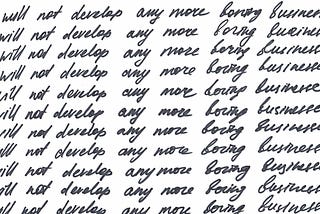 will not develop any more boring business
will not develop any more boring business
will not develop any more boring business
will not develop any more boring businesse
will not develop any more boring businesse
will not develop any more boring businesse
will not develop any more boring businesse
will not develop any more boring business
will not develop any more boring business
will not develop any more boring business
will not develop any more boring business